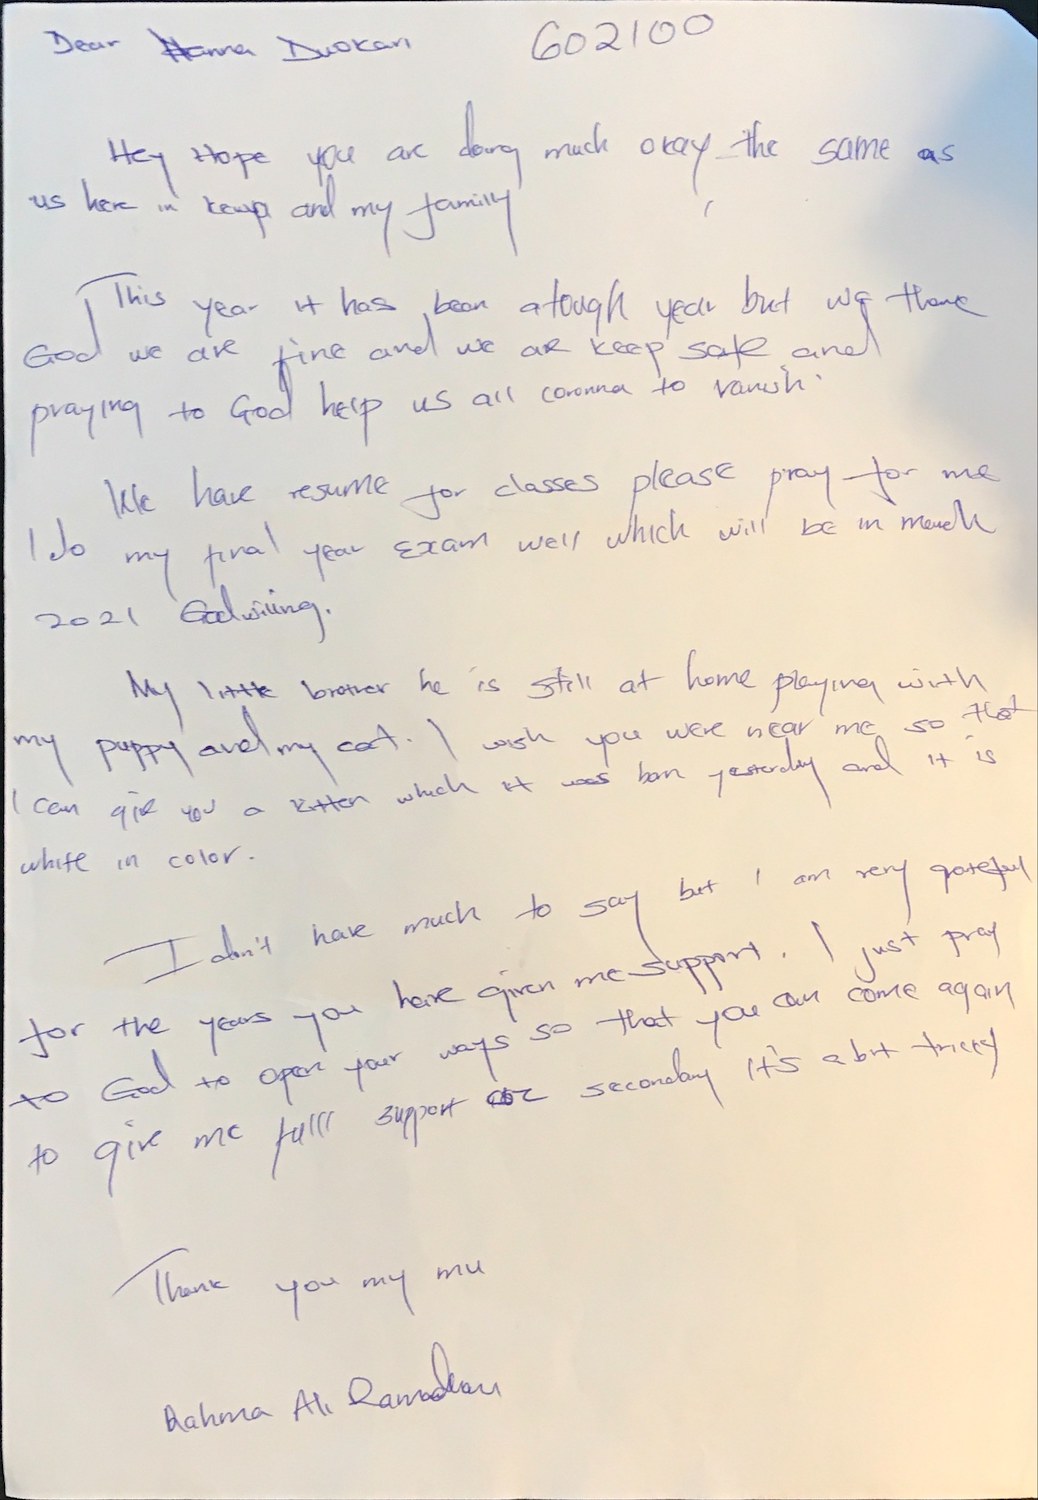 Dear Hanna Duokan 602100
Hey Hope you are doing much okay the same as
us here in kenya and my familly
This year it has been a tough year but we thank
God we are fine and we are keep safe and
praying to God help us all coronna to vanish.
We have resume for classes please pray for me
I do my final year Exam well which will be in march
2021 Godwiiing.
My little brother he is still at home playing with
my puppy and my cat. I wish you were near me so that
I can give you a kitten which it was born yesterday and it is
white in color.
I don't have much to say but I am very grateful
for the years you have given me support. I just pray
to God to open your ways so that you can come again
to give me falll support secondary it's a bit tricky
Thank you my mu
Rahma Ali Ramadhan